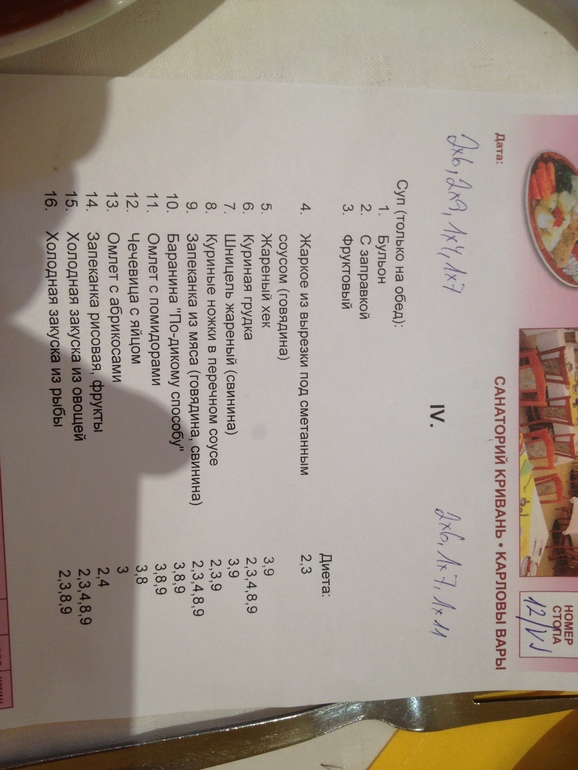 САНАТОРИЙ КРИВАНЬ • КАРЛОВЫ ВАРЫ
НОМЕР
СТОЛА
12/VI
Дата:
IV.
2x6, 2x9, 1x4, 1x7
2x6, 1x7, 1x11
Суп (только на обед):
1. Бульон
2. С заправкой
3. Фруктовый
Диета:
4. Жаркое из вырезки под сметанным
соусом (говядина) 2,3
5. Жареный хек 3,9
6. Куриная грудка 2,3,4,8,9
7. Шницель жареный (свинина) 3,9
8. Куриные ножки в перечном соусе 2,3,9
9. Запеканка из мяса (говядина, свинина) 2,3,4,8,9
10. Баранина "По-дикому способу" 3,8,9
11. Омлет с помидорами 3,8,9
12. Чечевица с яйцом 3,8
13. Омлет с абрикосами 3
14. Запеканка рисовая, фрукты 2,4
15. Холодная закуска из овощей 2,3,4,8,9
16. Холодная закуска из рыбы 2,3,8,9